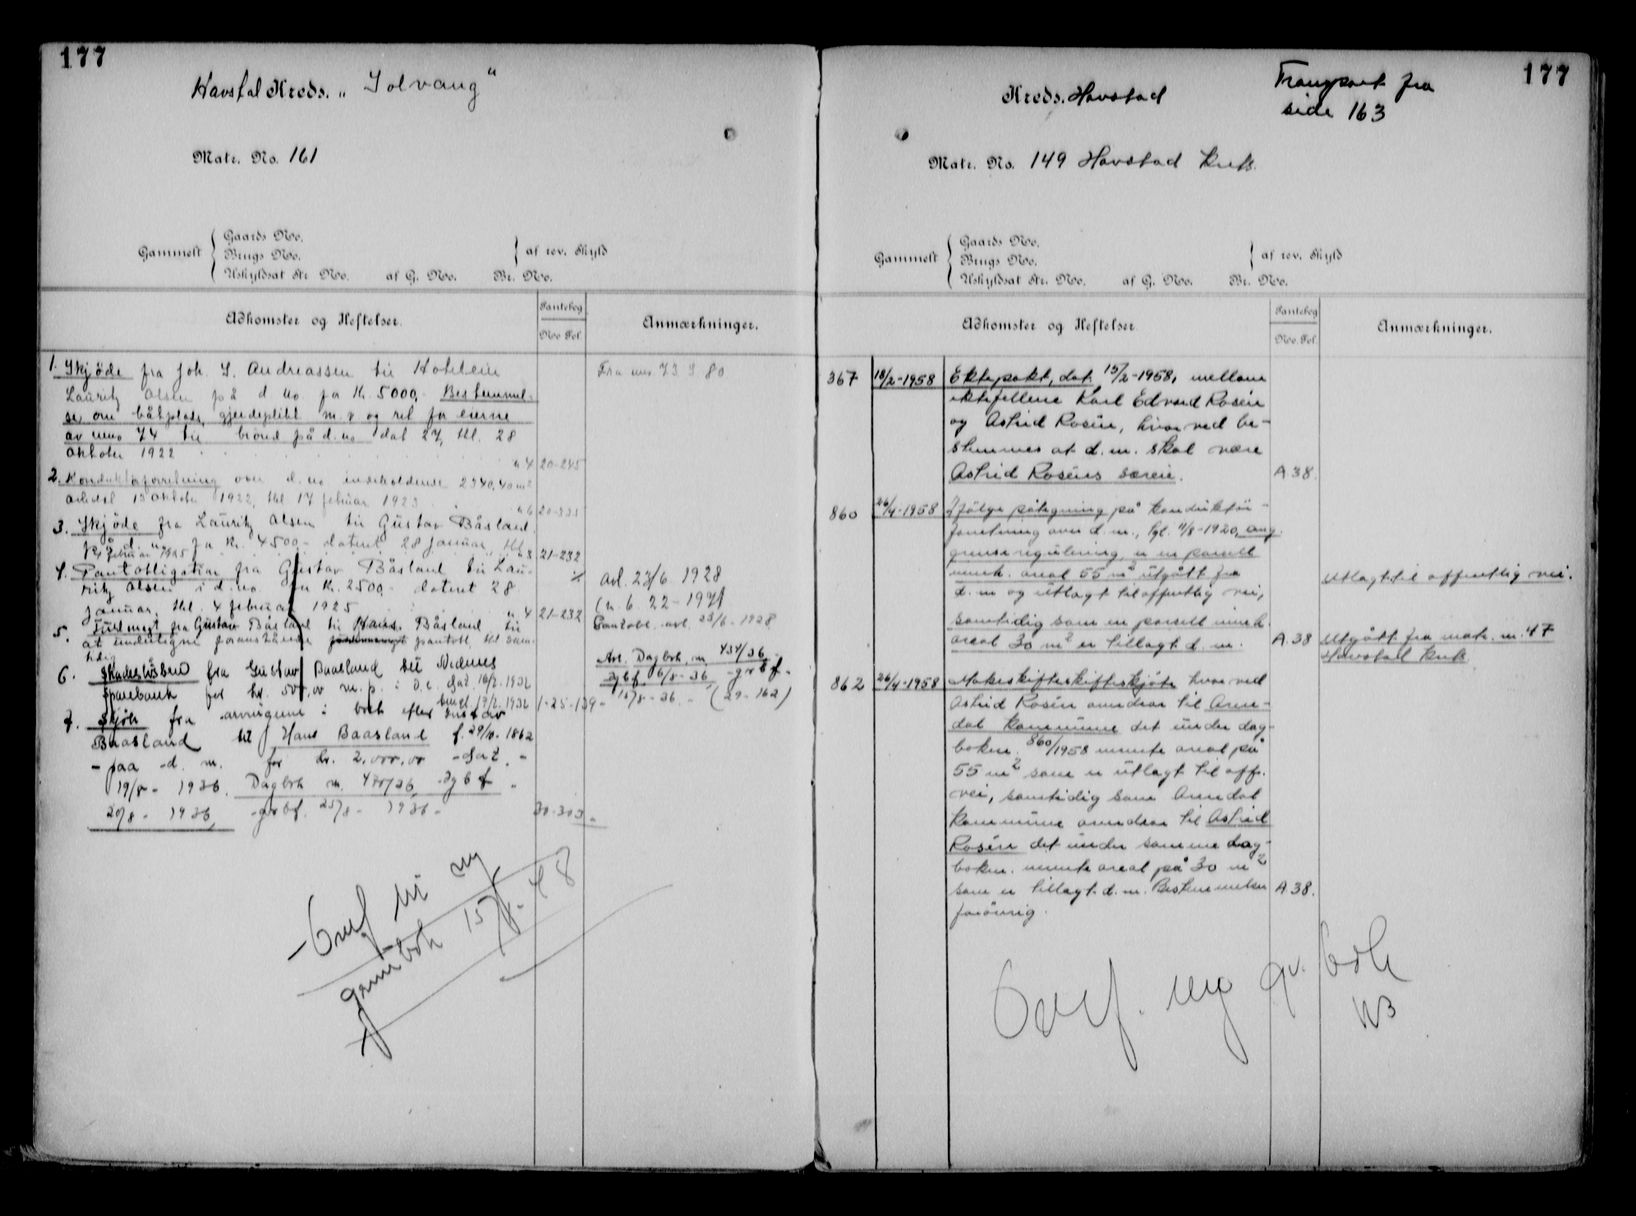 177
Havstad Kreds. „Solvang"
Matr. No. 161
Gammelt { Gaards No.
Brugs No.
Uskyldsat Nr. No. af G. No. Br. No.
} af rev. Skyld
Adkomster og Heftelser.
Pantebog
No. Fol.
Anmærkninger.
1. Skjöde fra Joh. S. Andreassen til
Lauritz Olsen på d. no for Kr. 5000,- Bestemmel-
se om båtplass, gjerdeplikt m.v. og ret for eierne
av mno 74 til brönd på d. no dat 27, thl. 28
oktober 1922
" 4 20-245
Fra mno 73 S 80
2. Konduktörforretning over d. no indeholdende 2340,40 m²
1922, thl 17 februar 1923
" 6 20-
3. Skjöde fra Lauritz Olsen til Gustav Båsland
på d. no for Kr. 4500,- dateret 28 januar, thl.
4 februar 1925
" 3 21-232
4. Pantobligation fra Gustav Båsland til Lau-
ritz Olsen i d. no for Kr. 2500,- dateret 28
januar, thl. 4 februar 1925
" 4 21-232
Avl. 23/6 1928
Pantobl. avl. 23/6 - 1928
5. Fuldmagt fra Gustav Båsland til Hans Båsland til
at undertegne foranstående pantobl. thl sam-
tidig
6. Skadeslösbrev fra Gustav Baasland til
Sparebank for kr. 500,00 m.p. i d.e. dat. 16/2 1932
tingl. 17/2 1932 1-25-139-
Avl. Dagbok nr 434/36
dgbf 6/8-36 -grbf-
15/8-36. - (29-162)
7. Skjöte fra arvingene i boet efter Gustav
Baasland til Hans Baasland f. 29/10-1862
- paa d. m. for kr. 2.000,00 -dat.-
19/8- 1936. Dagbok nr. 470/36 dgbf -
20/8 - 1936, grbf. 25/8 - 1936-
30-303-
- Overf til ny
grunnbok 15/8-48
177
Kreds. Havstad
Transport fra
side 163
Matr. No. 149 Havstad krets.
Gammelt { Gaards No.
Brugs No.
Uskyldsat Nr. No. af G. No. Br. No.
} af rev. Skyld
Adkomster og Heftelser.
Pantebog
No. Fol.
Anmærkninger.
367 18/2-1958 Ektepakt, dat. 15/2-1958, mellom
ektefellene Karl Edvard Rosén
og Astrid Rosén, hvorved be-
stemmes at d. m. skal være
Astrid Roséns særeie. A 38.
860 26/4-1958 Ifölge påtegning på konduktör-
forretning over d. m., tgl. 11/8-1920, ang.
grenseregulering, er en parsell
innh. areal 55 m² utgått fra
d. m. og utlagt til offentlig vei,
Utlagt til offentlig vei.
samtidig som en parsell innh.
areal 30 m² er tillagt d. m. A 38
Utgått fra matr. nr. 47
Havstad krets.
862 26/4-1958 Makeskifteskjöte hvorved
Astrid Rosén overdrar til Aren-
dal kommune det under dag-
boknr. 860/1958 nevnte areal på
55 m² som er utlagt til off.
vei, samtidig som Arendal
kommune overdrar til Astrid
Rosén det under samme dag-
boknr. nevnte areal på 30 m²
som er tillagt d. m. Bestemmelser A 38.
forövrig.
Overf. ny gr. bok